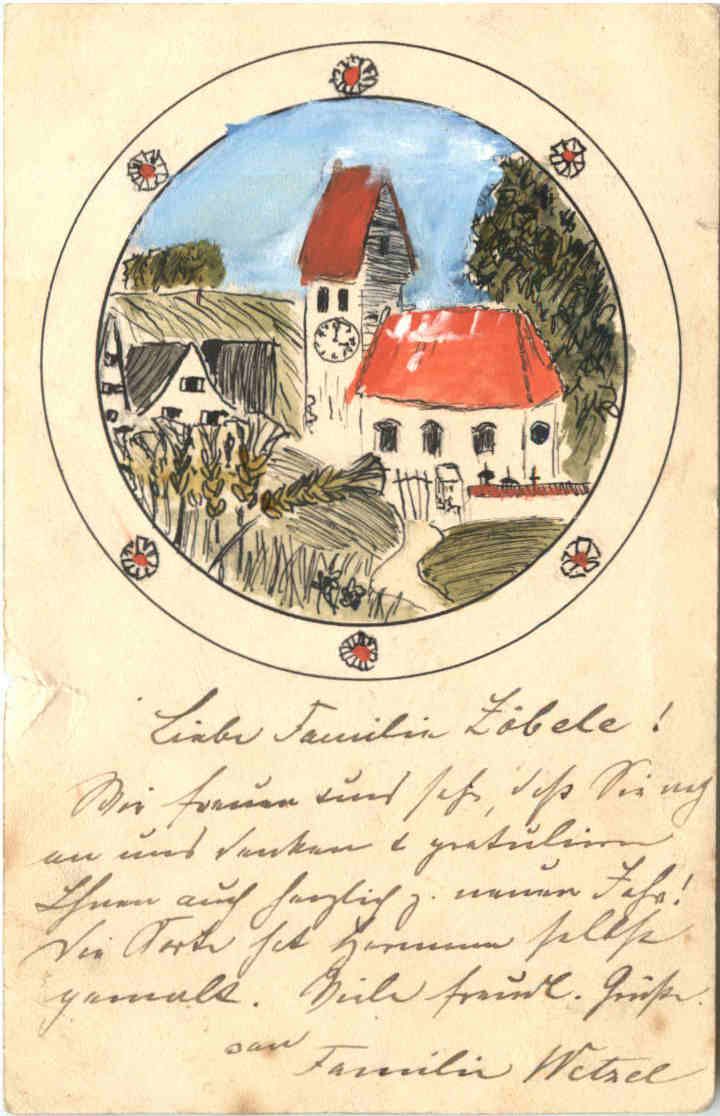 Liebe Familie Zöbele!
Wir freuen uns sehr, daß Sie noch
an uns denken & gratulieren
Ihnen auch herzlich z. neuen Jahr!
Die Karte hat Hermann selbst
gemalt. Viele freundl. Grüße.
von Familie Wetzel